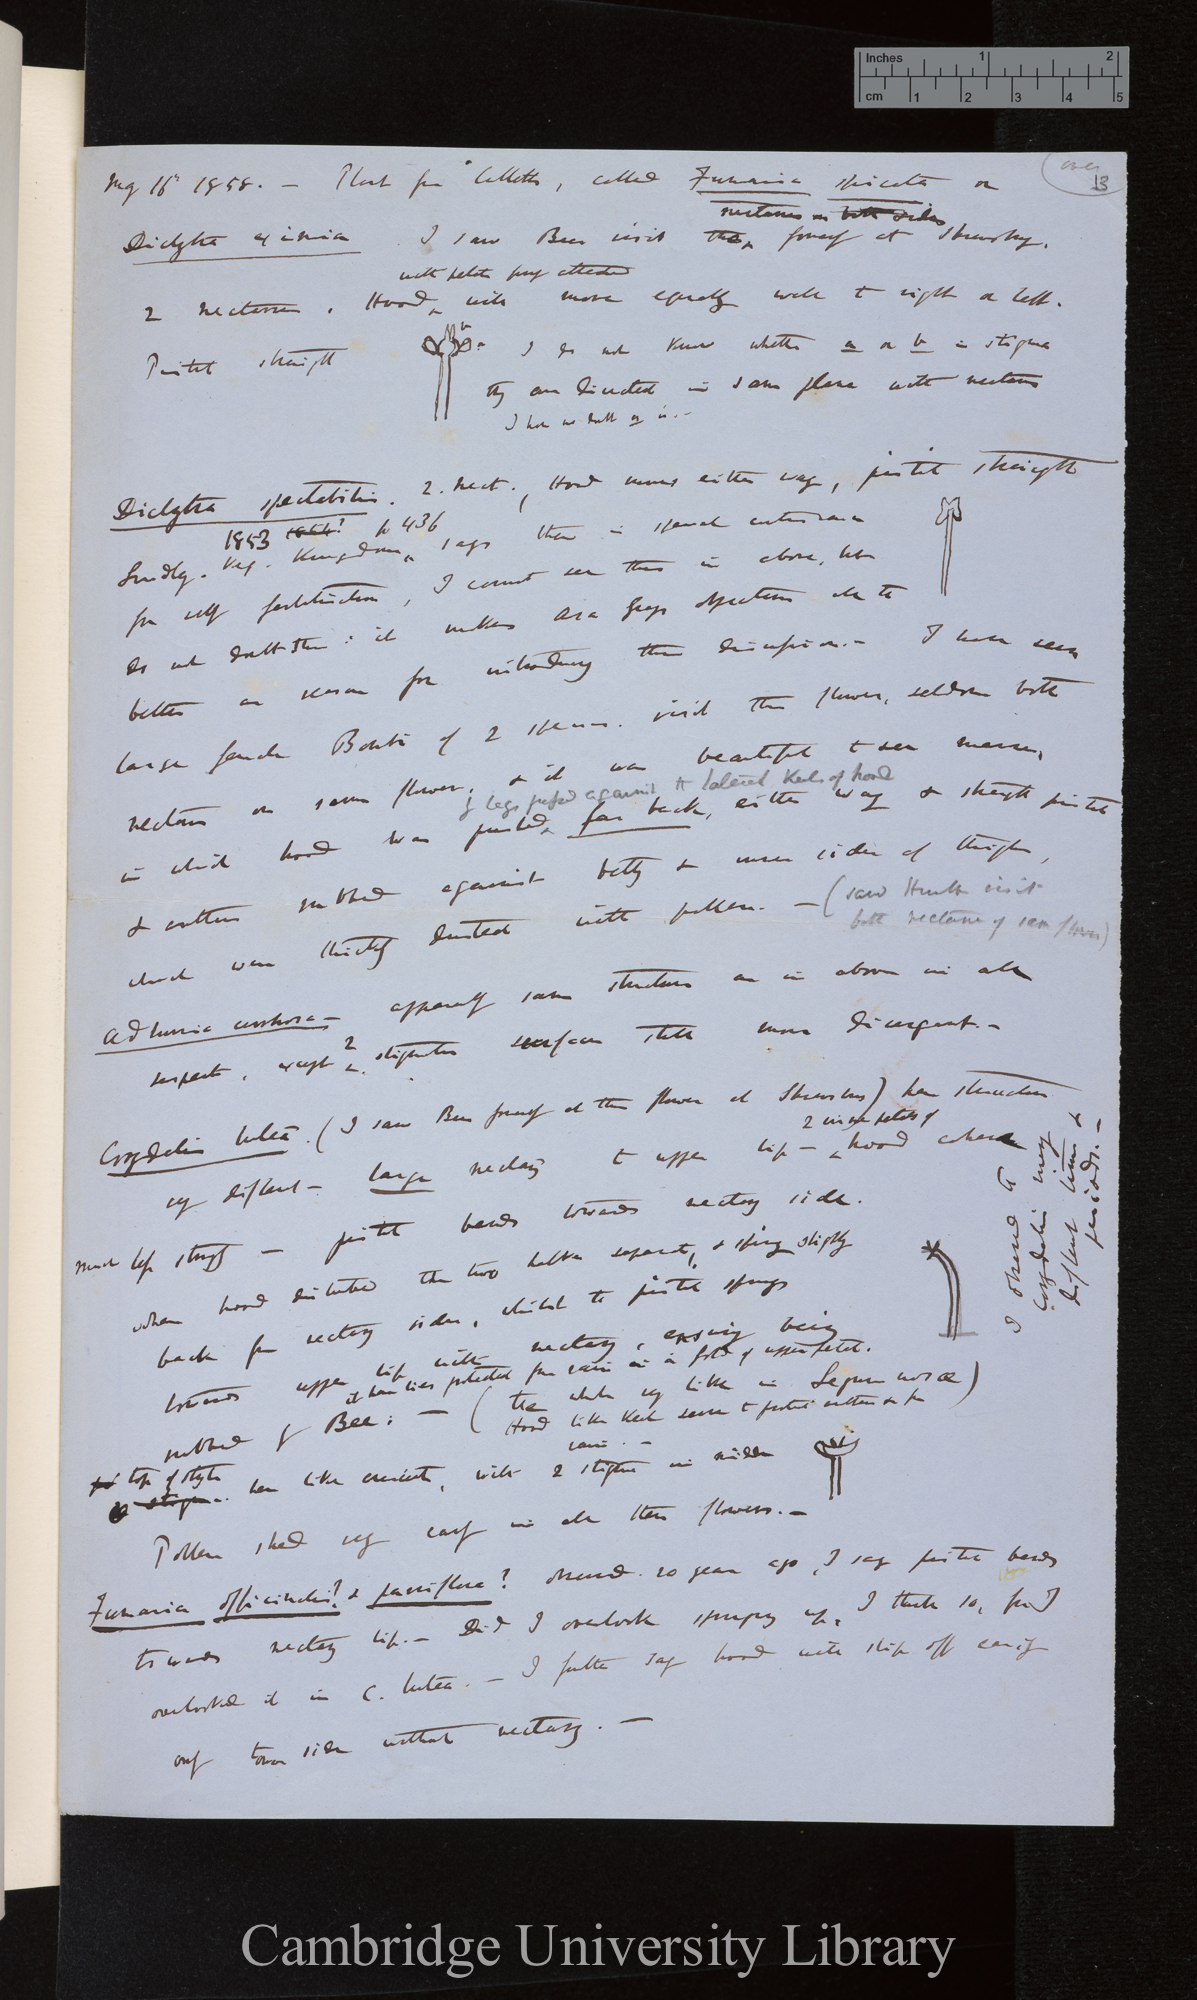 (over
13
May 16th 1858. — Plant from Colletts, called Fumaria spicata or
nectaries on both sides
Diclytra eximia . I saw Bees visit the, freely at Shrewsby.
with petals firmly attached
2 nectaries. Hood, will move equally well to right or left.
Pistil straight
b
a
I do not know whether a or b is stigma
they are directed in same plane with nectaries
I have no doubt a is.—
Diclytra spectabilis. 2. nect., Hood moves either way, pistil straight
1853 1854? p 436
Lindley. Veg. Kingdom, says there is special contrivance
for self fertilisation, I cannot see this in above, but
do not doubt them: it makes Asa Gray's objections all the
better as reason for introducing this discussion.— I have seen
large female Bombi of 2 species. visit this flower, seldom both
nectaries on same flower, & it was beautiful to see manner,
by legs pressed against the lateral keels of hood
in which hood was pushed, far back, either way & straight pistil
& anthers rubbed against belly & inner sides of thighs,
which were thickly dusted with pollen. — (saw Humble visit
both nectaries of same flower)
Adlumia cirrhosa — apparently same structure as in above in all
respects, except 2 stigmatic surfaces still more divergent.—
Corydalis lutea. (I saw Bees freely at this flower at Shrewsbury) has structure
2 inner petals of
very different — large nectary to upper lip — hood cohere
much less strongly — pistil bends towards nectary side.
when hood disturbed the two halves separate, & spring slightly
back from nectary side, whilst the pistil springs
towards upper lip with nectary, ensuring being
it then lies protected from rain in a fold of upper petal.
rubbed by Bee: — (the whole very like in Leguminosæ)
Hood like Keel serves to protect anthers &c from
rain. —
top of style
stigma. here like crescent, with 2 stigmas in middle
Pollen shed very early in all these flowers.—
Fumaria officinalis? & parviflora? observed 20 years ago, I say pistil bends
towards nectary lip.— Did I overlook springing up, I think so, for I
overlooked it in C. lutea. — I further say hood will slip off easily
only toward side without nectary. —
I observed the
Corydalis many
different times &
periods.—
Cambridge University Library
Inches 1 2
cm 1 2 3 4 5